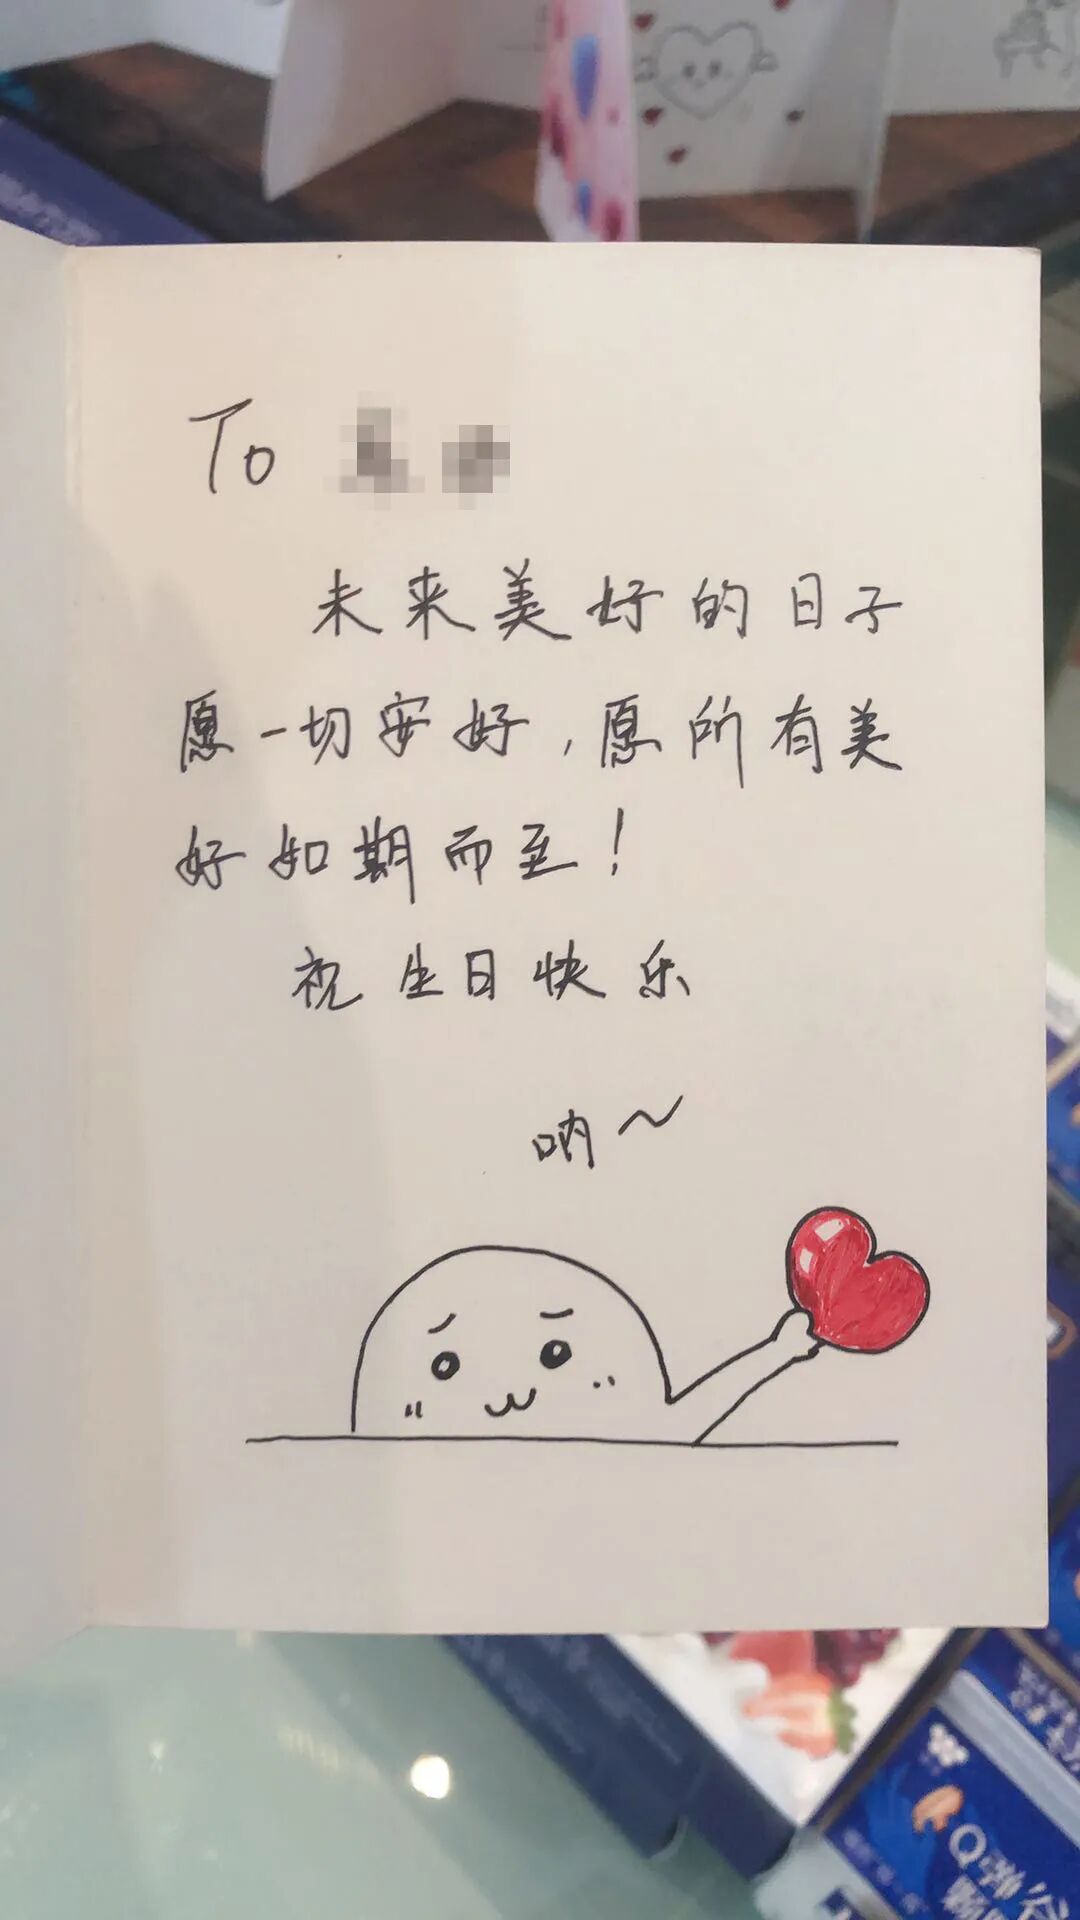 To
未来美好的日子
愿一切安好，愿所有美
好如期而至！
祝生日快乐
呐～
Q弹谷